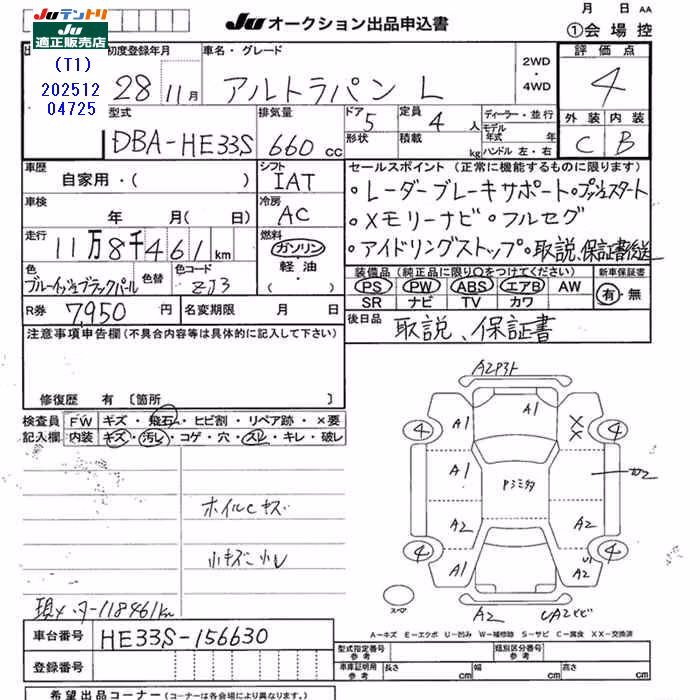 Juテントリ
適正販売店
(T1)
202512
04725
Ju オークション出品申込書
月 日 AA
①会場控
初度登録年月
28 11月
車名・グレード
アルトラパン L
2WD
・
4WD
評価点
4
型式
DBA-HE33S
排気量
660 cc
ドア
5
形状
定員
4 人
積載
kg
ディーラー・並行
モデル年式 年
ハンドル 左・右
外装 内装
C B
車歴
自家用・( )
シフト
IAT
セールスポイント (正常に機能するものに限ります)
・レーダーブレーキサポート・プッシュスタート
・メモリーナビ・フルセグ
・アイドリングストップ・取説、保証書後送
車検
年 月( 日)
冷房
AC
走行
11万8千461 km
燃料
ガソリン
・
軽油
( )
色
ブルーイッシュブラックパール
色替
色コード
ZJ3
装備品 (純正品に限り○をつけてください)
PS PW ABS エアB AW
SR ナビ TV カワ
新車保証書
有・無
R券
7,950 円
名変期限 月 日
後日品
取説、保証書
注意事項申告欄 (不具合内容等は具体的に記入して下さい)
修復歴 有 〔箇所 〕
検査員
記入欄
FW キズ・飛石・ヒビ割・リペア跡・×要
内装 キズ・汚レ・コゲ・穴・スレ・キレ・破レ
ホイルCキズ
小キズ小凹
現メーター118461km
A2P3ト
A1
A1
XX
4
4
A1
P3ミタ多
A2
A2
A2
4
4
A1
U1
A2
スペア
A2
A-キズ E-エクボ U-凹み W-補修跡 S-サビ C-腐食 XX-交換済
車台番号
HE33S-156630
登録番号
型式指定番号
参考
類別区分番号
参考
車庫証明用
参考
長さ cm 幅 cm 高さ cm
希望出品コーナー (コーナーは各会場により異なります。)